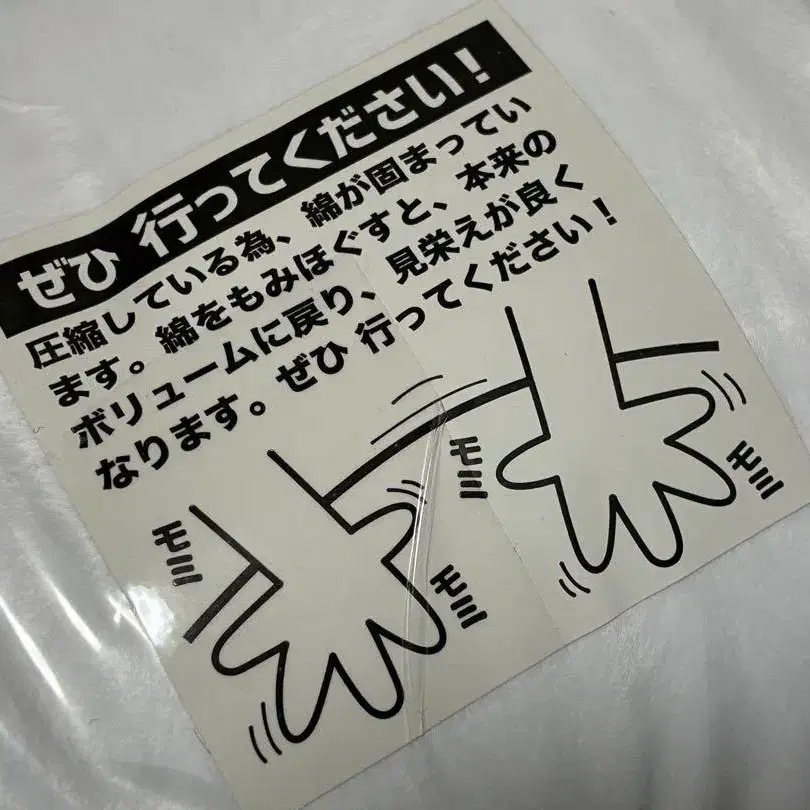 ぜひ 行ってください！
圧縮している為、綿が固まってい
ます。綿をもみほぐすと、本来の
ボリュームに戻り、見栄えが良く
なります。ぜひ 行ってください！
モミ
モミ
モミ
モミ